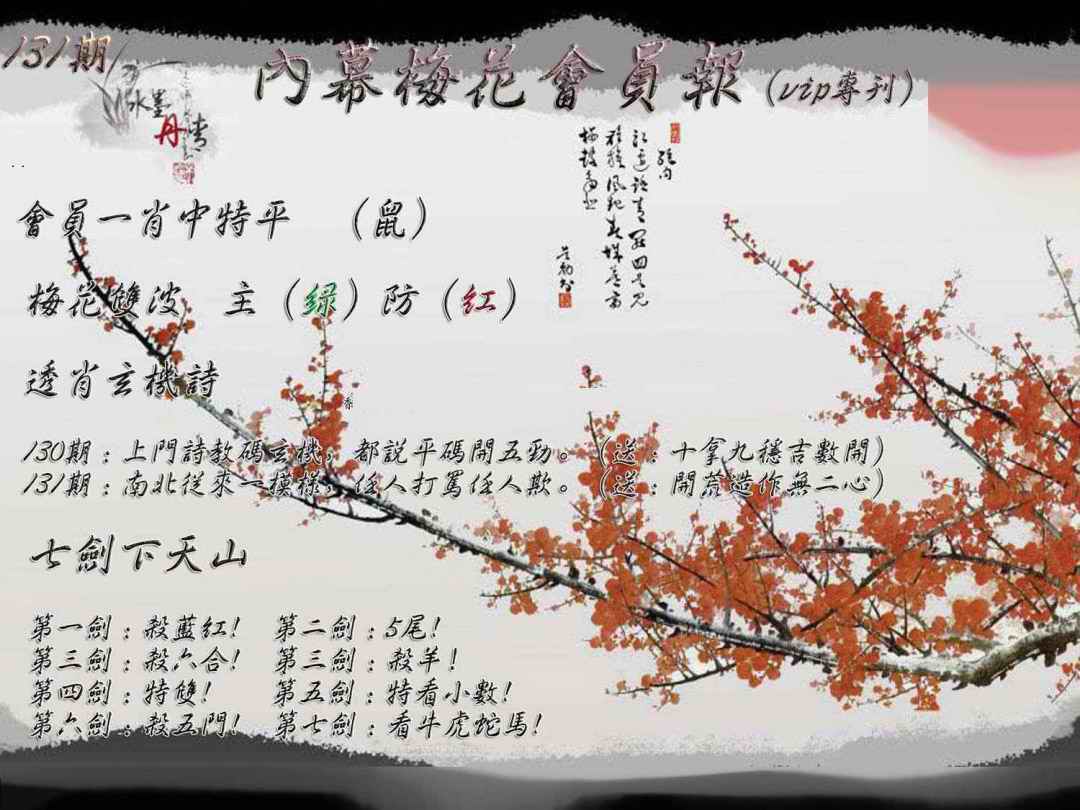 131期
內幕梅花會員報(vip專刊)
水墨
丹青
會員一肖中特平 (鼠)
梅花雙波 主(绿)防(红)
透肖玄機詩
130期:上門詩教碼玄機,都説平碼開五勁。(送:十拿九穩吉數開)
131期:南北從來一模樣,任人打罵任人欺。(送:開荒造作無二心)
七劍下天山
第一劍:殺藍紅! 第二劍:5尾!
第三劍:殺六合! 第三劍:殺羊!
第四劍:特雙! 第五劍:特看小數!
第六劍:殺五門! 第七劍:看牛虎蛇馬!